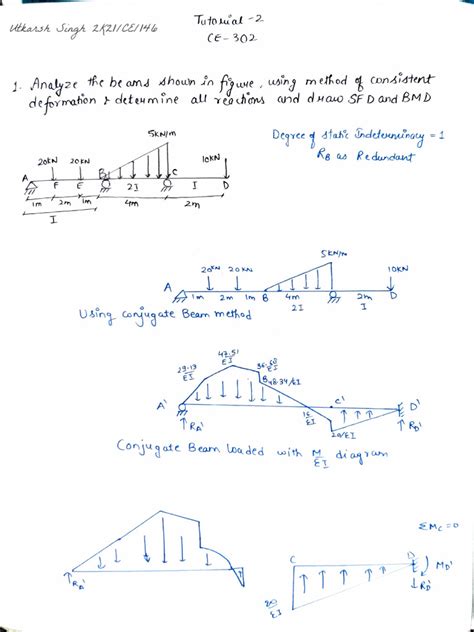 Utkarsh Singh 2K21/CE/146
Tutorial -2
CE-302
1. Analyze the beams shown in figure, using method of consistent
deformation & determine all reactions and draw SFD and BMD
Degree of static Indeterminacy = 1
RB as Redundant
5KN/m
20KN 20KN 10KN
A F E B C D
1m 2m 1m 2I 4m I 2m
I
5KN/m
20KN 20KN 10KN
A 1m 2m 1m B 4m 2I 2m I D
Using conjugate Beam method
29.17/EI 47.51/EI 36.68/EI
B 48.34/EI
A' C' D'
RA' 15/EI 20/EI RD'
Conjugate Beam loaded with M/EI diagram
ΣMC=0
C D
RA' MD'
RD'
20/EI